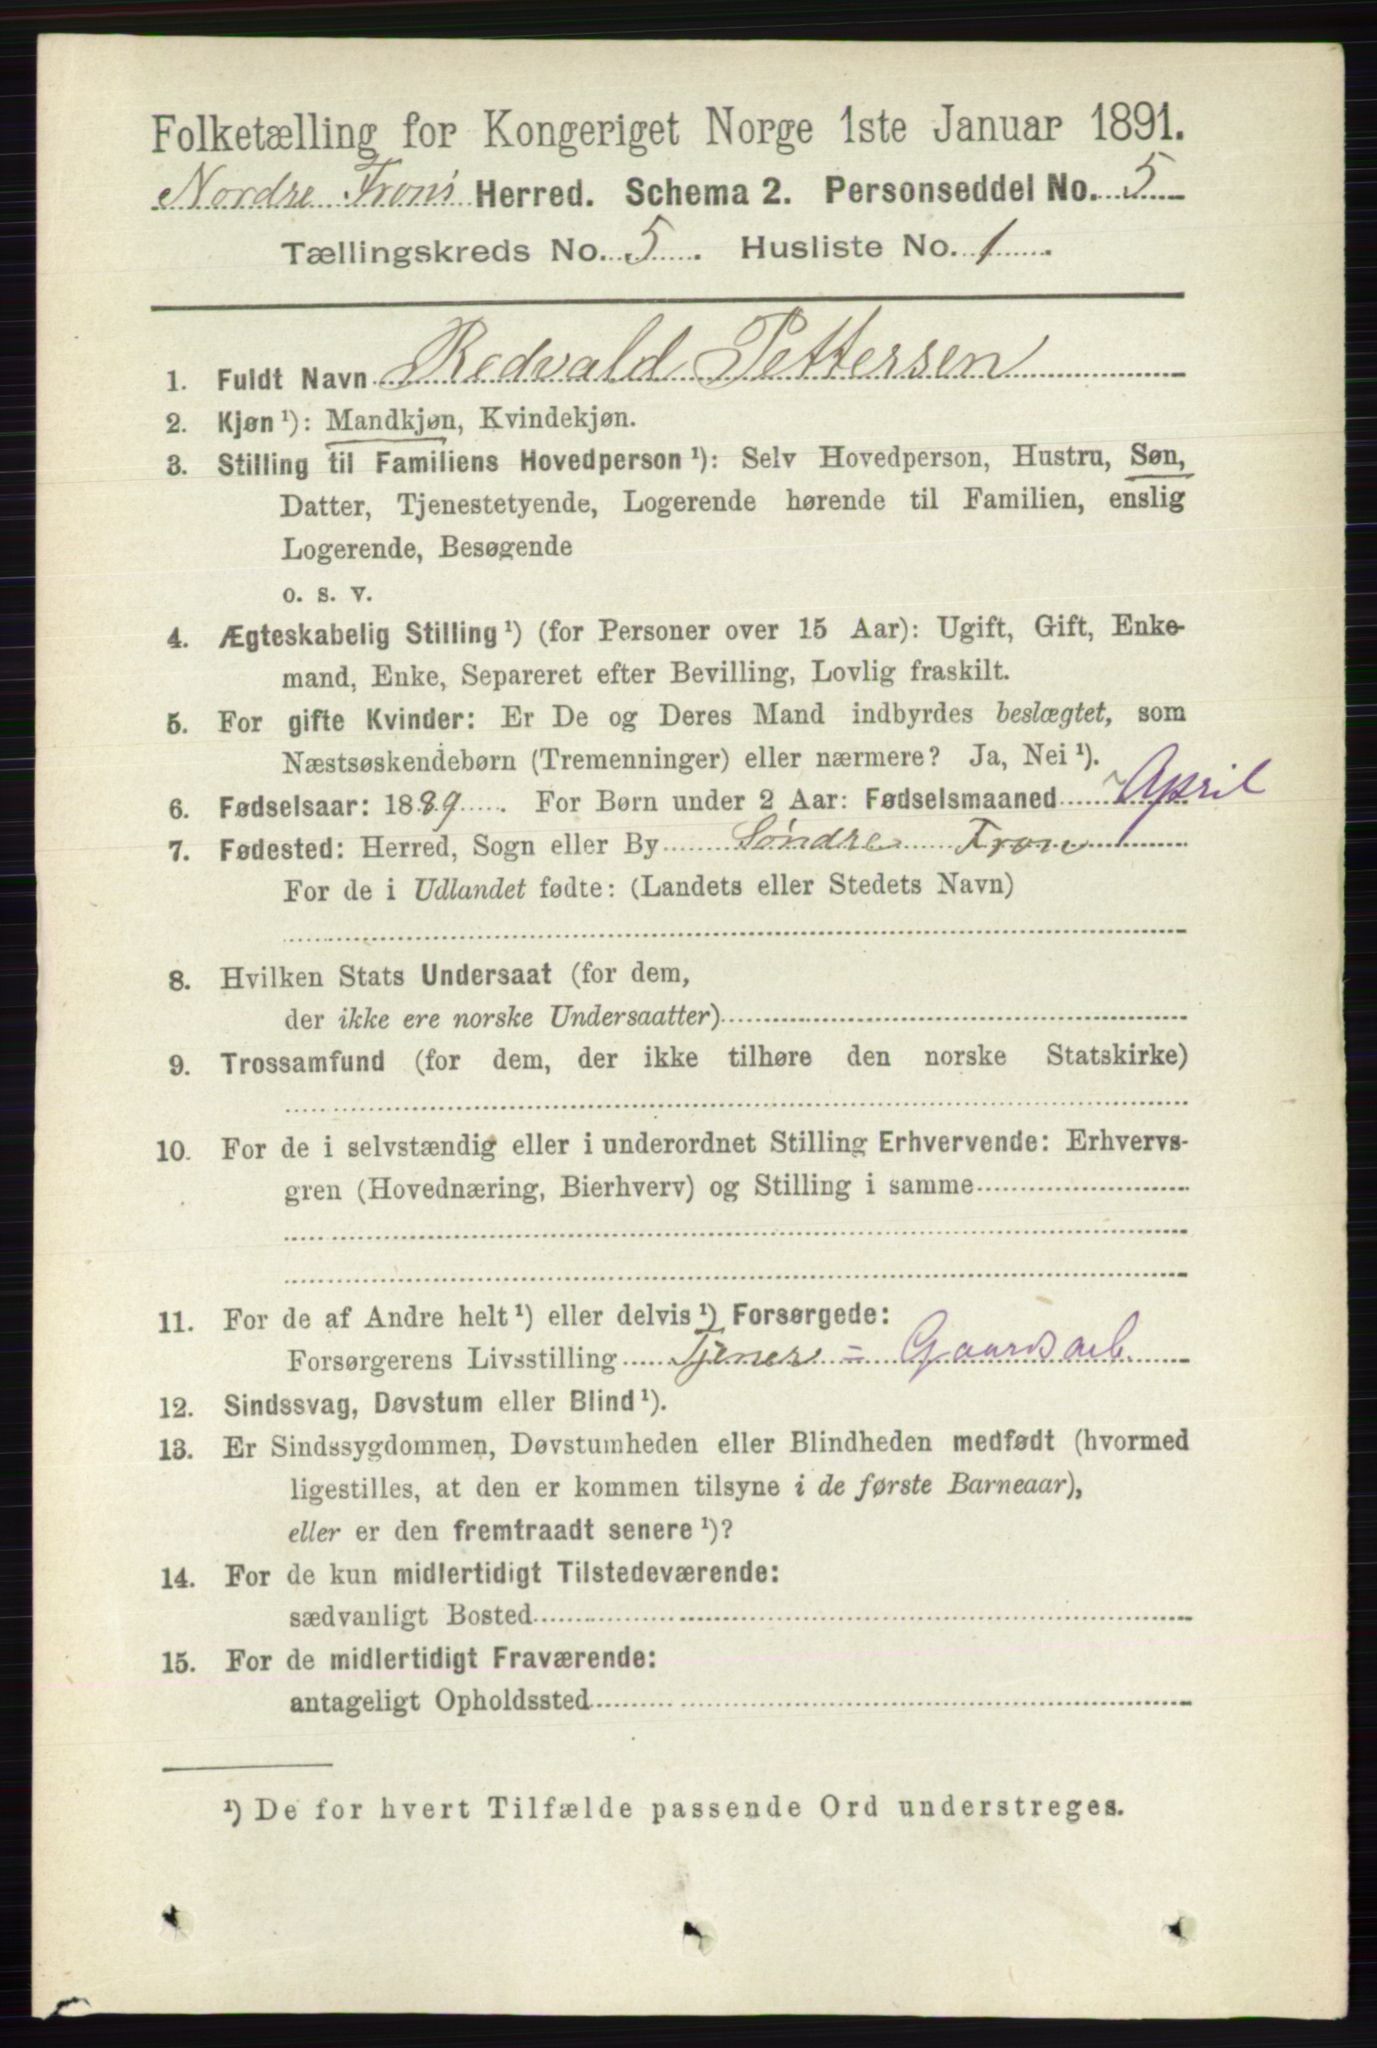 Folketælling for Kongeriget Norge 1ste Januar 1891.
Nordre Frons Herred. Schema 2. Personseddel No. 5
Tællingskreds No. 5. Husliste No. 1
1. Fuldt Navn Redvald Pettersen
2. Kjøn ¹): Mandkjøn, Kvindekjøn.
3. Stilling til Familiens Hovedperson ¹): Selv Hovedperson, Hustru, Søn,
Datter, Tjenestetyende, Logerende hørende til Familien, enslig
Logerende, Besøgende
o. s. v.
4. Ægteskabelig Stilling ¹) (for Personer over 15 Aar): Ugift, Gift, Enke-
mand, Enke, Separeret efter Bevilling, Lovlig fraskilt.
5. For gifte Kvinder: Er De og Deres Mand indbyrdes beslægtet, som
Næstsøskendebørn (Tremenninger) eller nærmere? Ja, Nei ¹).
6. Fødselsaar: 1889. For Børn under 2 Aar: Fødselsmaaned April
7. Fødested: Herred, Sogn eller By Søndre Fron
For de i Udlandet fødte: (Landets eller Stedets Navn)
8. Hvilken Stats Undersaat (for dem,
der ikke ere norske Undersaatter)
9. Trossamfund (for dem, der ikke tilhøre den norske Statskirke)
10. For de i selvstændig eller i underordnet Stilling Erhvervende: Erhvervs-
gren (Hovednæring, Bierhverv) og Stilling i samme
11. For de af Andre helt ¹) eller delvis ¹) Forsørgede:
Forsørgerens Livsstilling Tjener = Gaardsarb.
12. Sindssvag, Døvstum eller Blind ¹).
13. Er Sindssygdommen, Døvstumheden eller Blindheden medfødt (hvormed
ligestilles, at den er kommen tilsyne i de første Barneaar),
eller er den fremtraadt senere ¹)?
14. For de kun midlertidigt Tilstedeværende:
sædvanligt Bosted
15. For de midlertidigt Fraværende:
antageligt Opholdssted
¹) De for hvert Tilfælde passende Ord understreges.